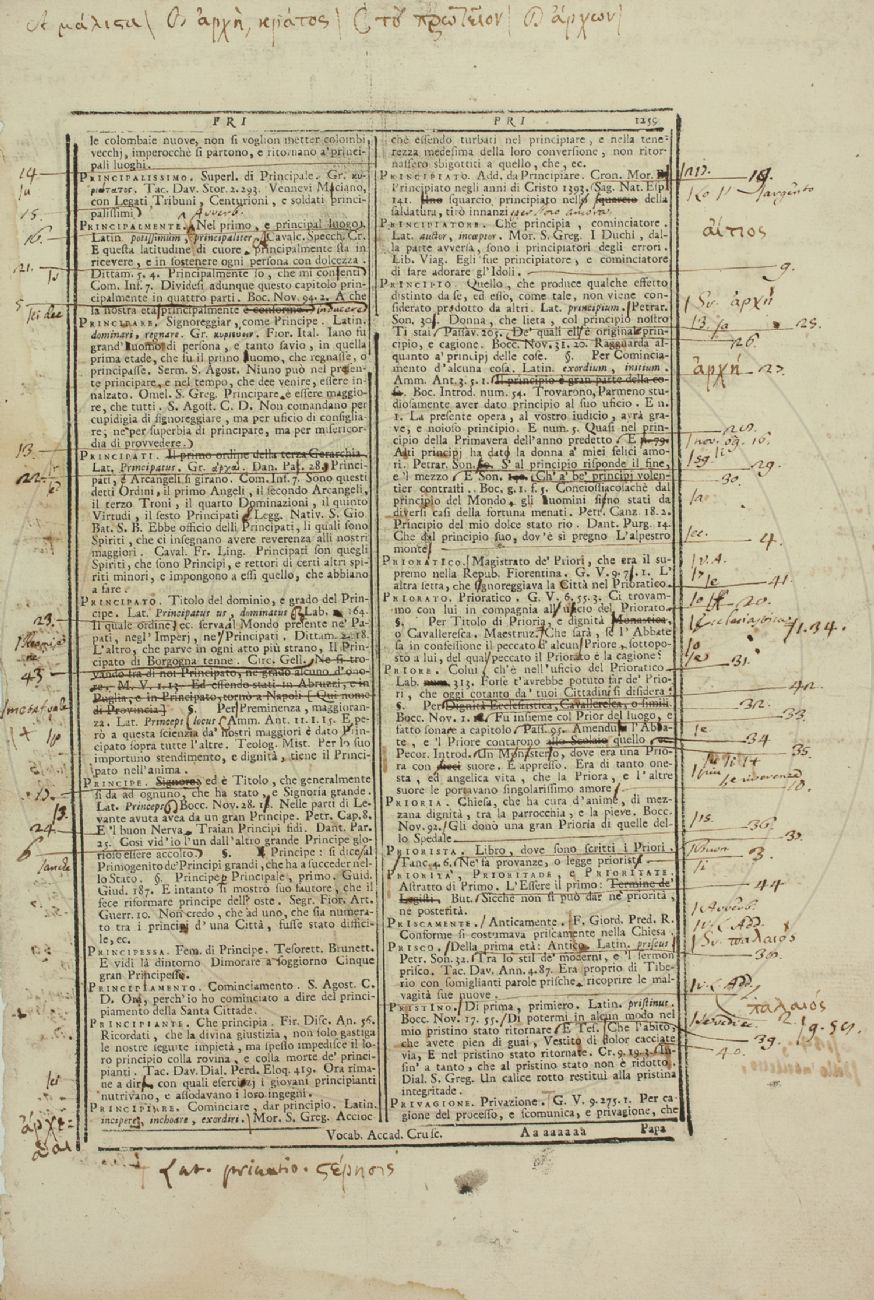 A μάλιςα\ B\ ἀρχὴ, κράτος\ C τὸ πρωτεῖον\ D ἄρχων\
PRI
PRI 1259
le colombaie nuove, non si voglion metter colombi
vecchj, imperocchè si partono, e ritornano a'princi-
pali luoghi.
PRINCIPALISSIMO. Superl. di Principale. Gr.
Tac. Dav. Stor. 2. 293. Vennevi Muciano,
con Legati Tribuni, Centurioni, e soldati princi-
palissimi
Avverb.
PRINCIPALMENTE. Nel primo, e principal luogo.
Latin. potissimùm, principaliter Cavalc. Specch. Cr.
E questa latitudine di cuore principalmente sta in
ricevere, e in sostenere ogni persona con dolcezza.
Dittam. 5. 4. Principalmente io, che mi contenti
Com. Inf. 7. Dividesi adunque questo capitolo prin-
cipalmente in quattro parti. Boc. Nov. 94. 2. A che
la nostra età principalmente è conforme inducere
PRINCIPARE. Signoreggiar, come Principe. Latin.
dominari, regnare. Gr. Fior. Ital. Iano fu
grand'huomo di persona, e tanto savio, in quella
prima etade, che fu il primo huomo, che regnasse, o
principasse. Serm. S. Agost. Niuno può nel presen-
te principare, e nel tempo, che dee venire, essere in-
nalzato. Omel. S. Greg. Principare è essere maggio-
re, che tutti. S. Agost. C. D. Non comandano per
cupidigia di signoreggiare, ma per uficio di consiglia-
re; ne per superbia di principare, ma per misericor-
dia di provvedere.
PRINCIPATI. Il primo ordine della terza Gerarchia.
Lat. Principatus. Gr. ἀρχαί. Dan. Par. 28. Princi-
pati, e Arcangeli si girano. Com. Inf. 7. Sono questi
detti Ordini, il primo Angeli, il secondo Arcangeli,
il terzo Troni, il quarto Dominazioni, il quinto
Virtudi, il sesto Principati Legg. Nativ. S. Gio.
Bat. S. B. Ebbe officio delli Principati, li quali sono
Spiriti, che ci insegnano avere reverenza alli nostri
maggiori. Caval. Fr. Ling. Principati son quegli
Spiriti, che sono Principi, e rettori di certi altri spi-
riti minori, e impongono a essi quello, che abbiano
a fare.
PRINCIPATO. Titolo del dominio, e grado del Prin-
cipe. Lat. Principatus us, dominatus Lab. 164.
Il quale ordine, ec. serva al Mondo presente ne'Pa-
pati, negl'Imperj, ne'Principati. Dittam. 2. 18.
L'altro, che parve in ogni atto più strano, Il Prin-
cipato di Borgogna tenne. Circ. Gell. Ne si tro-
vando fra di noi Principato, ne grado alcuno d'ono-
re. M. V. 1. 13. Ed essendo stati in Abruzzi, e in
Puglia, e in Principato, tornò a Napoli [Qui nome
di Provincia] §. Per Preminenza, maggioran-
za. Lat. Princeps locus Amm. Ant. 11. 1. 15. E pe-
rò a questa scienzia da'nostri maggiori è dato Prin-
cipato sopra tutte l'altre. Teolog. Mist. Per lo suo
importuno stendimento, e dignità, tiene il Princi-
pato nell'anima.
PRINCIPE. Signore, ed è Titolo, che generalmente
si da ad ognuno, che ha stato, e Signoria grande.
Lat. Princeps Bocc. Nov. 28. 1. Nelle parti di Le-
vante avuta avea da un gran Principe. Petr. Cap. 8.
E 'l buon Nerva Traian Principi fidi. Dant. Par.
25. Così vid'io l'un dall'altro grande Principe glo-
rioso essere accolto §. Principe: si dice al
Primogenito de'Principi grandi, che ha a succeder nel-
lo Stato. §. Principe Principale, primo. Guid.
Giud. 187. E intanto si mostrò suo fautore, che il
fece riformare principe dell'oste. Segr. Fior. Art.
Guerr. 10. Non credo, che ad uno, che sia numera-
to tra i principi d'una Città, fusse stato diffici-
le, ec.
PRINCIPESSA. Fem. di Principe. Tesorett. Brunett.
E vidi là dintorno Dimorare a soggiorno Cinque
gran Principesse.
PRINCIPIAMENTO. Cominciamento. S. Agost. C.
D. Ora, perch'io ho cominciato a dire del princi-
piamento della Santa Cittade.
PRINCIPIANTE. Che principia. Fir. Disc. An. 56.
Ricordati, che la divina giustizia, non solo gastiga
le nostre seguite impietà, ma spesso impedisce il lo-
ro principio colla rovina, e colla morte de'princi-
pianti. Tac. Dav. Dial. Perd. Eloq. 419. Ora rima-
ne a dire con quali esercizj i giovani principianti
nutrivano, e assodavano i loro ingegni.
PRINCIPIARE. Cominciare, dar principio. Latin.
incipere, inchoare, exordiri. Mor. S. Greg. Accioc
chè essendo turbati nel principiare, e nella tene-
rezza medesima della loro conversione, non ritor-
nassero sbigottiti a quello, che, ec.
PRINCIPIATO. Add. da Principiare. Cron. Mor.
l'Principiato negli anni di Cristo 1393. Sag. Nat. Esp.
141. squarcio, principiato nello squarcio della
saldatura, tirò innanzi
PRINCIPIATORE. Che principia, cominciatore.
Lat. auctor, inceptor. Mor. S. Greg. I Duchi, dal-
la parte avversa, sono i principiatori degli errori.
Lib. Viag. Egli fue principiatore, e cominciatore
di fare adorare gl'Idoli.
PRINCIPIO. Quello, che produce qualche effetto
distinto da se, ed esso, come tale, non viene con-
siderato prodotto da altri. Lat. principium. Petrar.
Son. 30. Donna, che lieta, col principio nostro
Ti stai Passav. 265. De' quali ell'è originale prin-
cipio, e cagione. Bocc. Nov. 31. 20. Ragguarda al-
quanto a'principj delle cose. §. Per Comincia-
mento d'alcuna cosa. Latin. exordium, initium.
Amm. Ant. 3. 5. 1. Il principio è gran parte della co-
sa. Boc. Introd. num. 54. Trovarono, Parmeno stu-
diosamente aver dato principio al suo uficio. E n.
1. La presente opera, al vostro iudicio, avrà gra-
ve, e noioso principio. E num. 5. Quasi nel prin-
cipio della Primavera dell'anno predetto E p. 79.
Alti principj ha dato la donna a' miei felici amo-
ri. Petrar. Son. S' al principio risponde il fine,
e 'l mezzo E Son. Ch' a' be' principj volen-
tier contrasti. Boc. g. 1. f. 5. Conciossiacosachè dal
principio del Mondo gli huomini sieno stati da
diversi casi della fortuna menati. Petr. Canz. 18. 2.
Principio del mio dolce stato rio. Dant. Purg. 14.
Che dal principio suo, dov'è sì pregno L'alpestro
monte
PRIORATICO. Magistrato de' Priori, che era il su-
premo nella Repub. Fiorentina. G. V. 9. 1. L'
altra setta, che signoreggiava la Città nel Prioratico.
PRIORATO. Prioratico. G. V. 6. 55. 3. Ci trovam-
mo con lui in compagnia all'uficio del Priorato.
§. Per Titolo di Prioria, e dignità Monastica,
o Cavalleresca. Maestruz. Che sarà, se l'Abbate
fa in confessione il peccato d'alcun Priore sottopo-
sto a lui, del qual peccato il Priorato è la cagione?
PRIORE. Colui ch'è nell'uficio del Prioratico.
Lab. 313. Forse t'avrebbe potuto far de'Prio-
ri, che oggi cotanto da' tuoi Cittadini si disidera
§. Per Dignità Ecclesiastica, Cavalleresca, o simili.
Bocc. Nov. 1. Fu insieme col Prior del luogo, e
fatto sonare a capitolo Pass. 95. Amendui l'Abba-
te, e 'l Priore contarono allo Scolaio quello
Pecor. Introd. In Monistero, dove era una Prio-
ra con dieci suore. E appresso. Era di tanto one-
sta, ed angelica vita, che la Priora, e l'altre
suore le portavano singolarissimo amore
PRIORIA. Chiesa, che ha cura d'anime, di mez-
zana dignità, tra la parrocchia, e la pieve. Bocc.
Nov. 92. Gli donò una gran Prioria di quelle del-
lo Spedale
PRIORISTA. Libro, dove sono scritti i Priori.
Tanc. 4. 6. Ne fa provanze, o legge priorista
PRIORITA', PRIORITADE, e PRIORITATE.
Astratto di Primo. L'Essere il primo: Termine de'
Logisti. But. Sicchè non si può dar nè priorità,
ne posterità.
PRISCAMENTE. Anticamente. F. Giord. Pred. R.
Conforme si costumava priscamente nella Chiesa.
PRISCO. Della prima età: Antico. Latin. priscus
Petr. Son. 32. Tra lo stil de' moderni, e 'l sermon
prisco. Tac. Dav. Ann. 4. 87. Era proprio di Tibe-
rio con somiglianti parole prische, ricoprire le mal-
vagità sue nuove.
PRISTINO. Di prima, primiero. Latin. pristinus.
Bocc. Nov. 17. 55. Di potermi in alcun modo nel
mio pristino stato ritornare E Tes. Che l'abito
che avete pien di guai, Vestito di dolor cacciate
via, E nel pristino stato ritornate. Cr. 9. 19. 3. In-
sin' a tanto, che al pristino stato non è ridotto.
Dial. S. Greg. Un calice rotto restituì alla pristina
integritade.
PRIVAGIONE. Privazione. G. V. 9. 275. 1. Per ca-
gione del processo, e scomunica, e privagione, che
Vocab. Accad. Crusc. Aaaaaaa Papa
Lat. privatio. ςέρησις
14
15.
16.
21.
5
13.
22.
23.
43
12.
24.
6
18.
argento
αἴτιος
9.
ἀρχή
25.
26.
ἀρχή 27.
28.
29.
30.
4.
41.
20.
31.
42.
32.
33
34
35.
36.
3.
44
παλαιός
38.
παλαιός
39.
40.